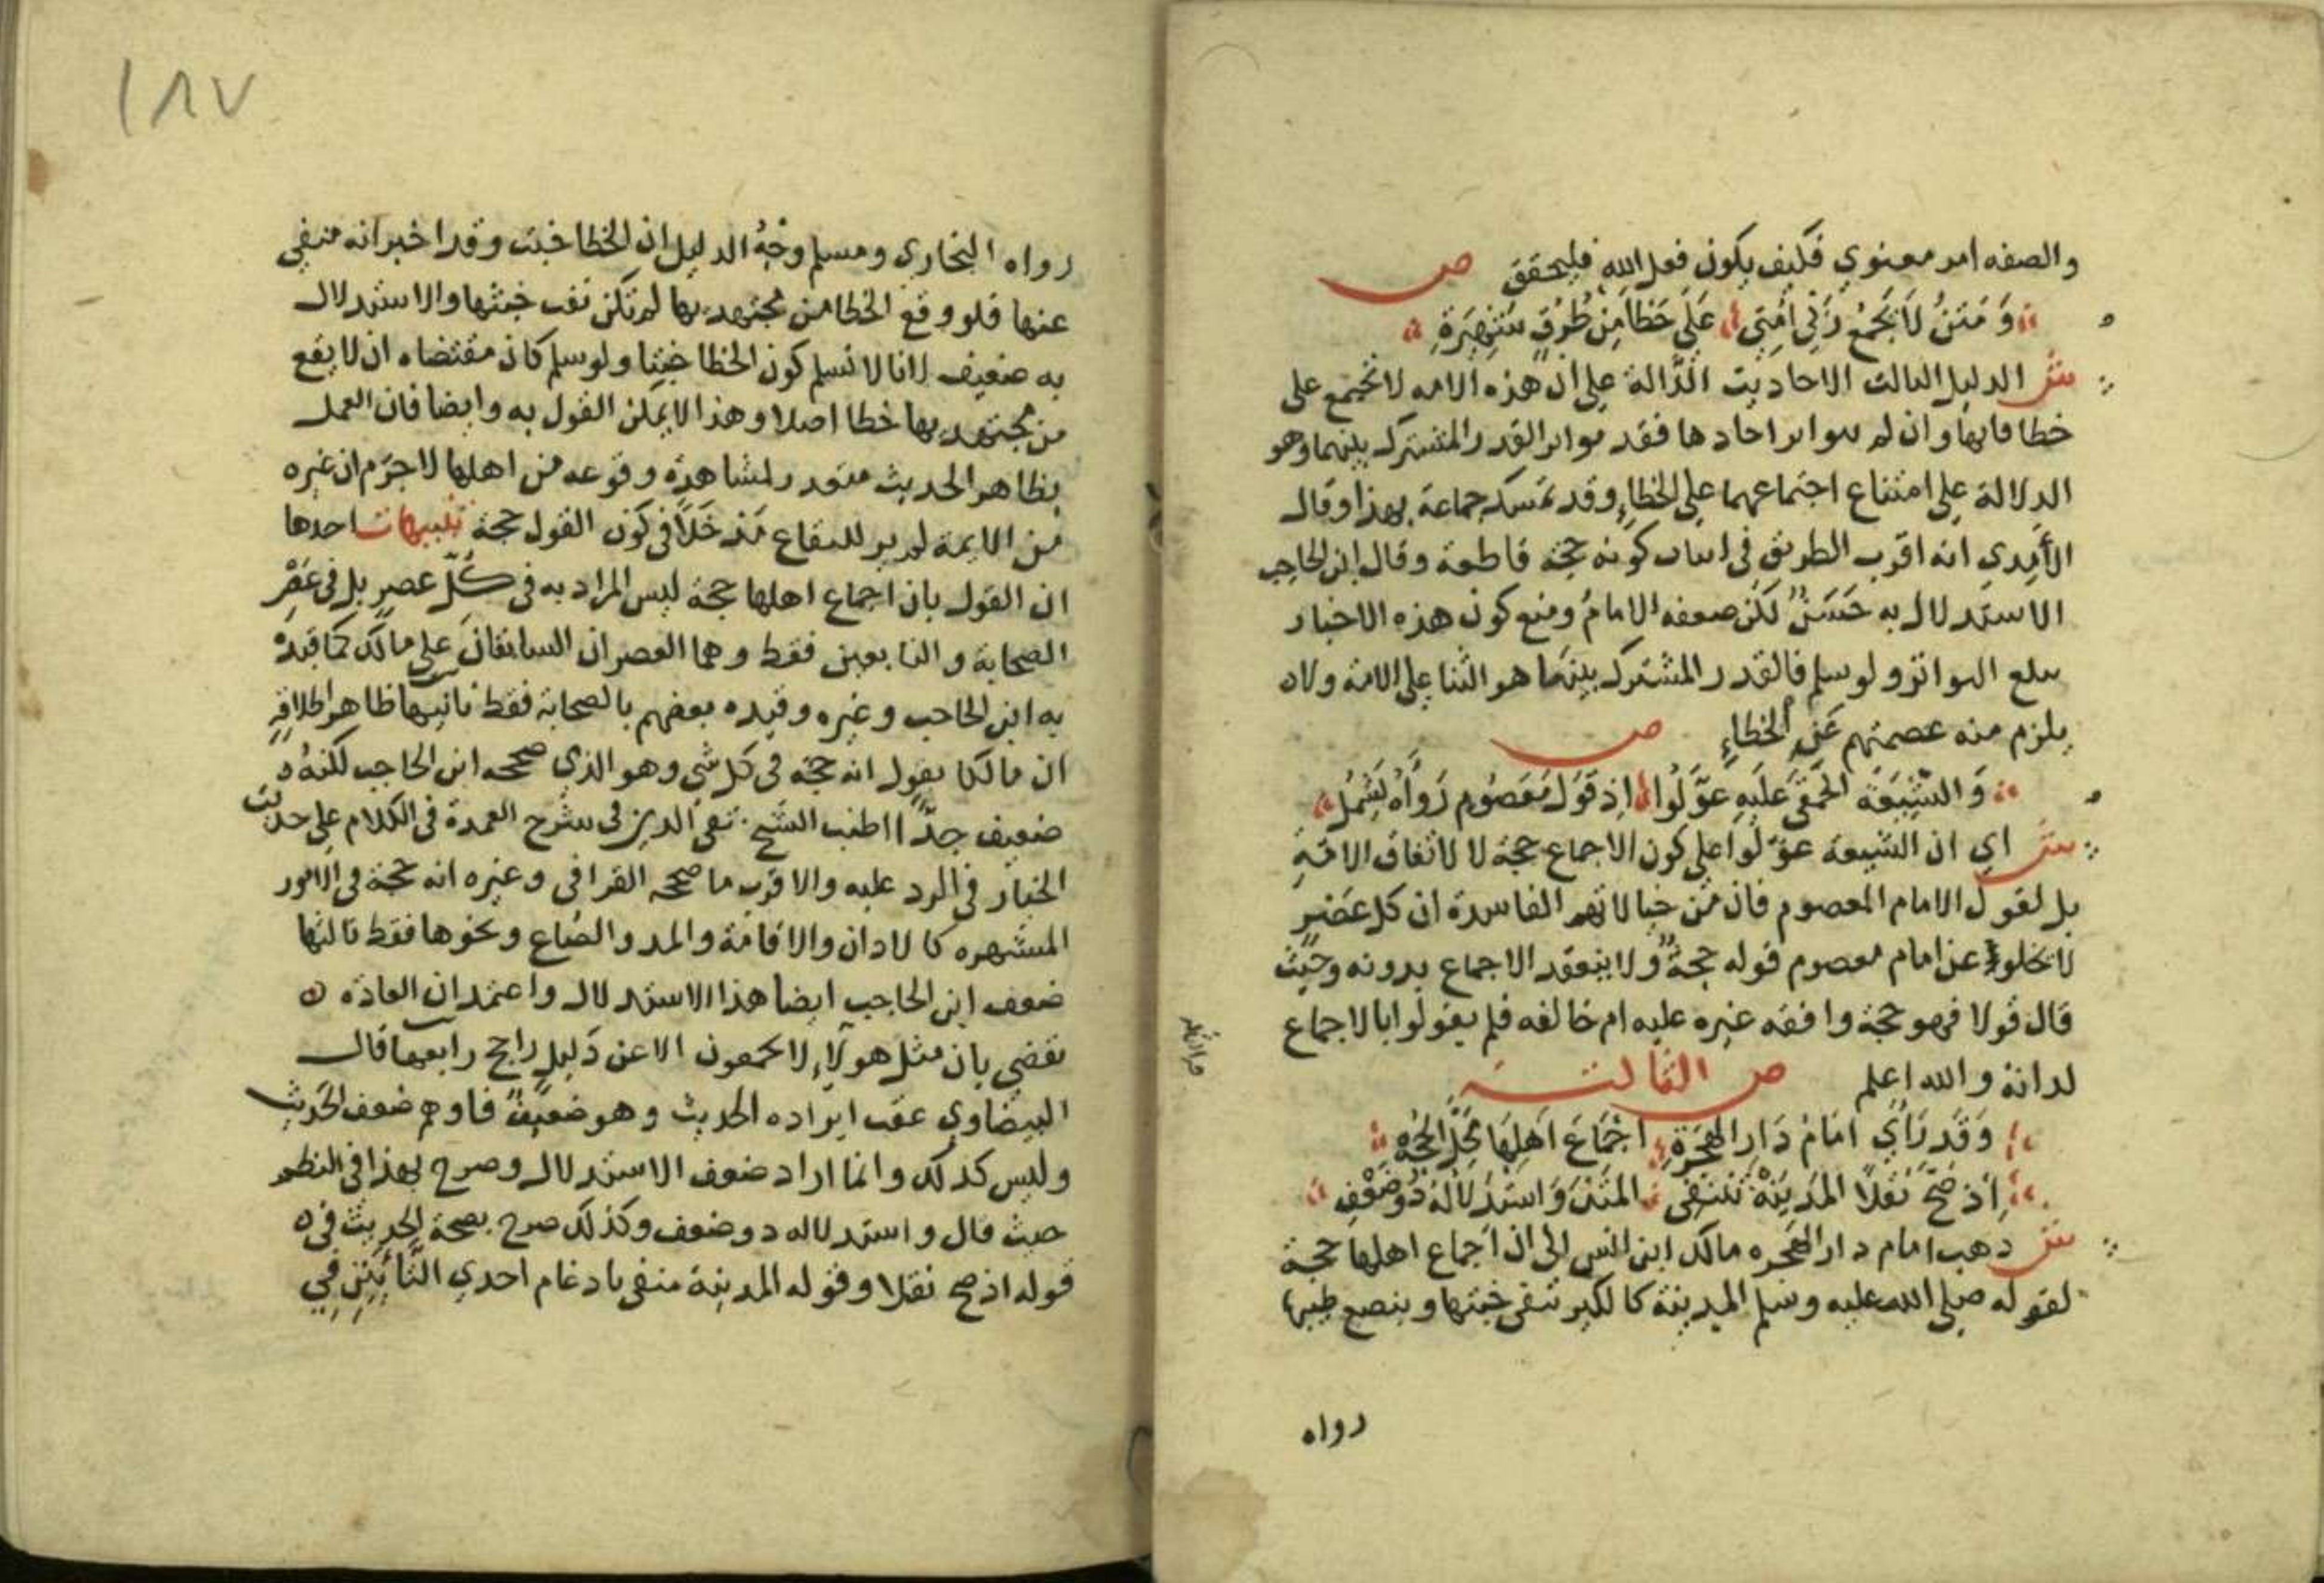 والصفه امر معنوي فكيف يكون فعل الله فليحقق ص
وَمَتنُ لاَ يَجمَعُ رَبِّي أُمَّتِي عَلَى خَطَأ مِنْ طُرُقٍ مشتهِرَةِ
ش الدليل الثالث الاحاديث الدَّالة على ان هذه الامه لا تجتمع على
خطا فانها وان لم يتواتر احادها فقد تواتر القدر المشترك بينهما وهو
الدلالة على امتناع اجتماعهما على الخطاء وقد تمسك جماعة بهذا وقال
الآمدي انه اقرب الطريق في اثبات كونه حجة قاطعة وقال ابن الحاجب
الاستدلال به حَسَنٌ لكن ضعفه الامامُ ومنع كون هذه الاخبار
تبلغ التواتر ولو سلم فالقدر المشترك بينهما هو الثنا على الامة ولان
يلزم منه عصمتهم عَنِ الخطاءِ ص
وَالشِّيعَة الحَمقَى عَلَيهِ عَوَّلُوا اِذ قَولَ مَعصُومٍ رَوَأهُ يَشمُلُ
ش اي ان الشيعة عوّلوا على كون الاجماع حجة لا لاتفاق الامّةِ
بل لقول الامام المعصوم فان من خيالاتهم الفاسدة ان كل عَصْرٍ
لا يخلو عن امام معصوم قوله حجةٌ ولا ينعقد الاجماع بدونه وحيث
قال قولا فهو حجة وافقه غيره عليه ام خالفه فلم يقولوا بالاجماع
لذاتة والله اعلم ص الثالثة
وَقَد رَأى اِمَامُ دَارِ الهِجرَةِ اِجمَاعَ أهلِهَا مَحَلَّ الحُجَّةِ
إذ صَحَّ نَقلاً المَدِينَةُ تَنتَفِي المَتنَ وَاستِدلاَلُهُ ذُو ضَعْفِ
ش ذهب امام دار الهجره مالك ابن انس الى ان اجماع اهلها حجة
لقوله صلى الله عليه وسلم المدينة كالكير تنفي خبثها وينصع طيبها
رواه
١٨٧
رواه البخاري ومسلم وجْهُ الدليل ان الخطا خبث وقد اخبر انه منفي
عنها فلو وقع الخطا من مجتهد بها لم تكن نفت خبثها والاستدلال
به ضعيف لانا لا نسلم كون الخطا خبثا ولو سلم كان مقتضاه ان لا يقع
من مجتهد بها خطا اصلا وهذا لا يمكن القول به وايضا فان العمل
بظاهر الحديث متعذر لمشاهدة وقوعه من اهلها لا جرم ان غيره
من الايمة لم ير للبقاع مَدخَلاً في كون القول حجة تنبيهات احدها
ان القول بان اجماع اهلها حجة ليس المراد به في كُلّ عصرٍ بل في عَصْرِ
الصحابة والتابعين فقط وهما العصران السابقان على مالك كما قيده
به ابن الحاجب وغيره وقيده بعضهم بالصحابة فقط ثانيها ظاهر اطلاقه
ان مالكا يقول انه حجة في كل شي وهو الذي صححه ابن الحاجب لكنه
ضعيف جدًّا اطنب الشيخ تقي الدين في شرح العمدة في الكلام على حديث
الخيار في الرد عليه والاقرب ما صححه القرافي وغيره انه حجة في الامور
المشتهره كالاذان والاقامة والمد والصاع ونحوها فقط ثالثها
ضعف ابن الحاجب ايضا هذا الاستدلال واعتمد ان العادة
تقضي بان مثل هولآءِ لا يجمعون الا عن دَليلٍ راجح رابعها قال
البيضاوي عقب ايراده الحديث وهو ضعيفٌ فاوهم ضعف الحديث
وليس كذلك وانما اراد ضعف الاستدلال وصرح بهذا في النظم
حيث قال واستدلاله ذو ضعف وكذلك صرح بصحة الحديث في
قوله اذ صح نقلا وقوله المدينة منفي بادغام احدي التَّاءَينِ في